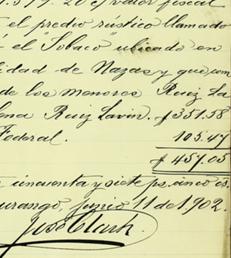 el predio rústico llamado
el "Tobaco" ubicado en
lidad de Nazas y que
de los menores Ruiz La
ena Ruiz Lavin. $351.58
Federal. 105.47
$457.05
cincuenta y siete ps. cinco cs.
urango, junio 11 de 1902.
José Clark.